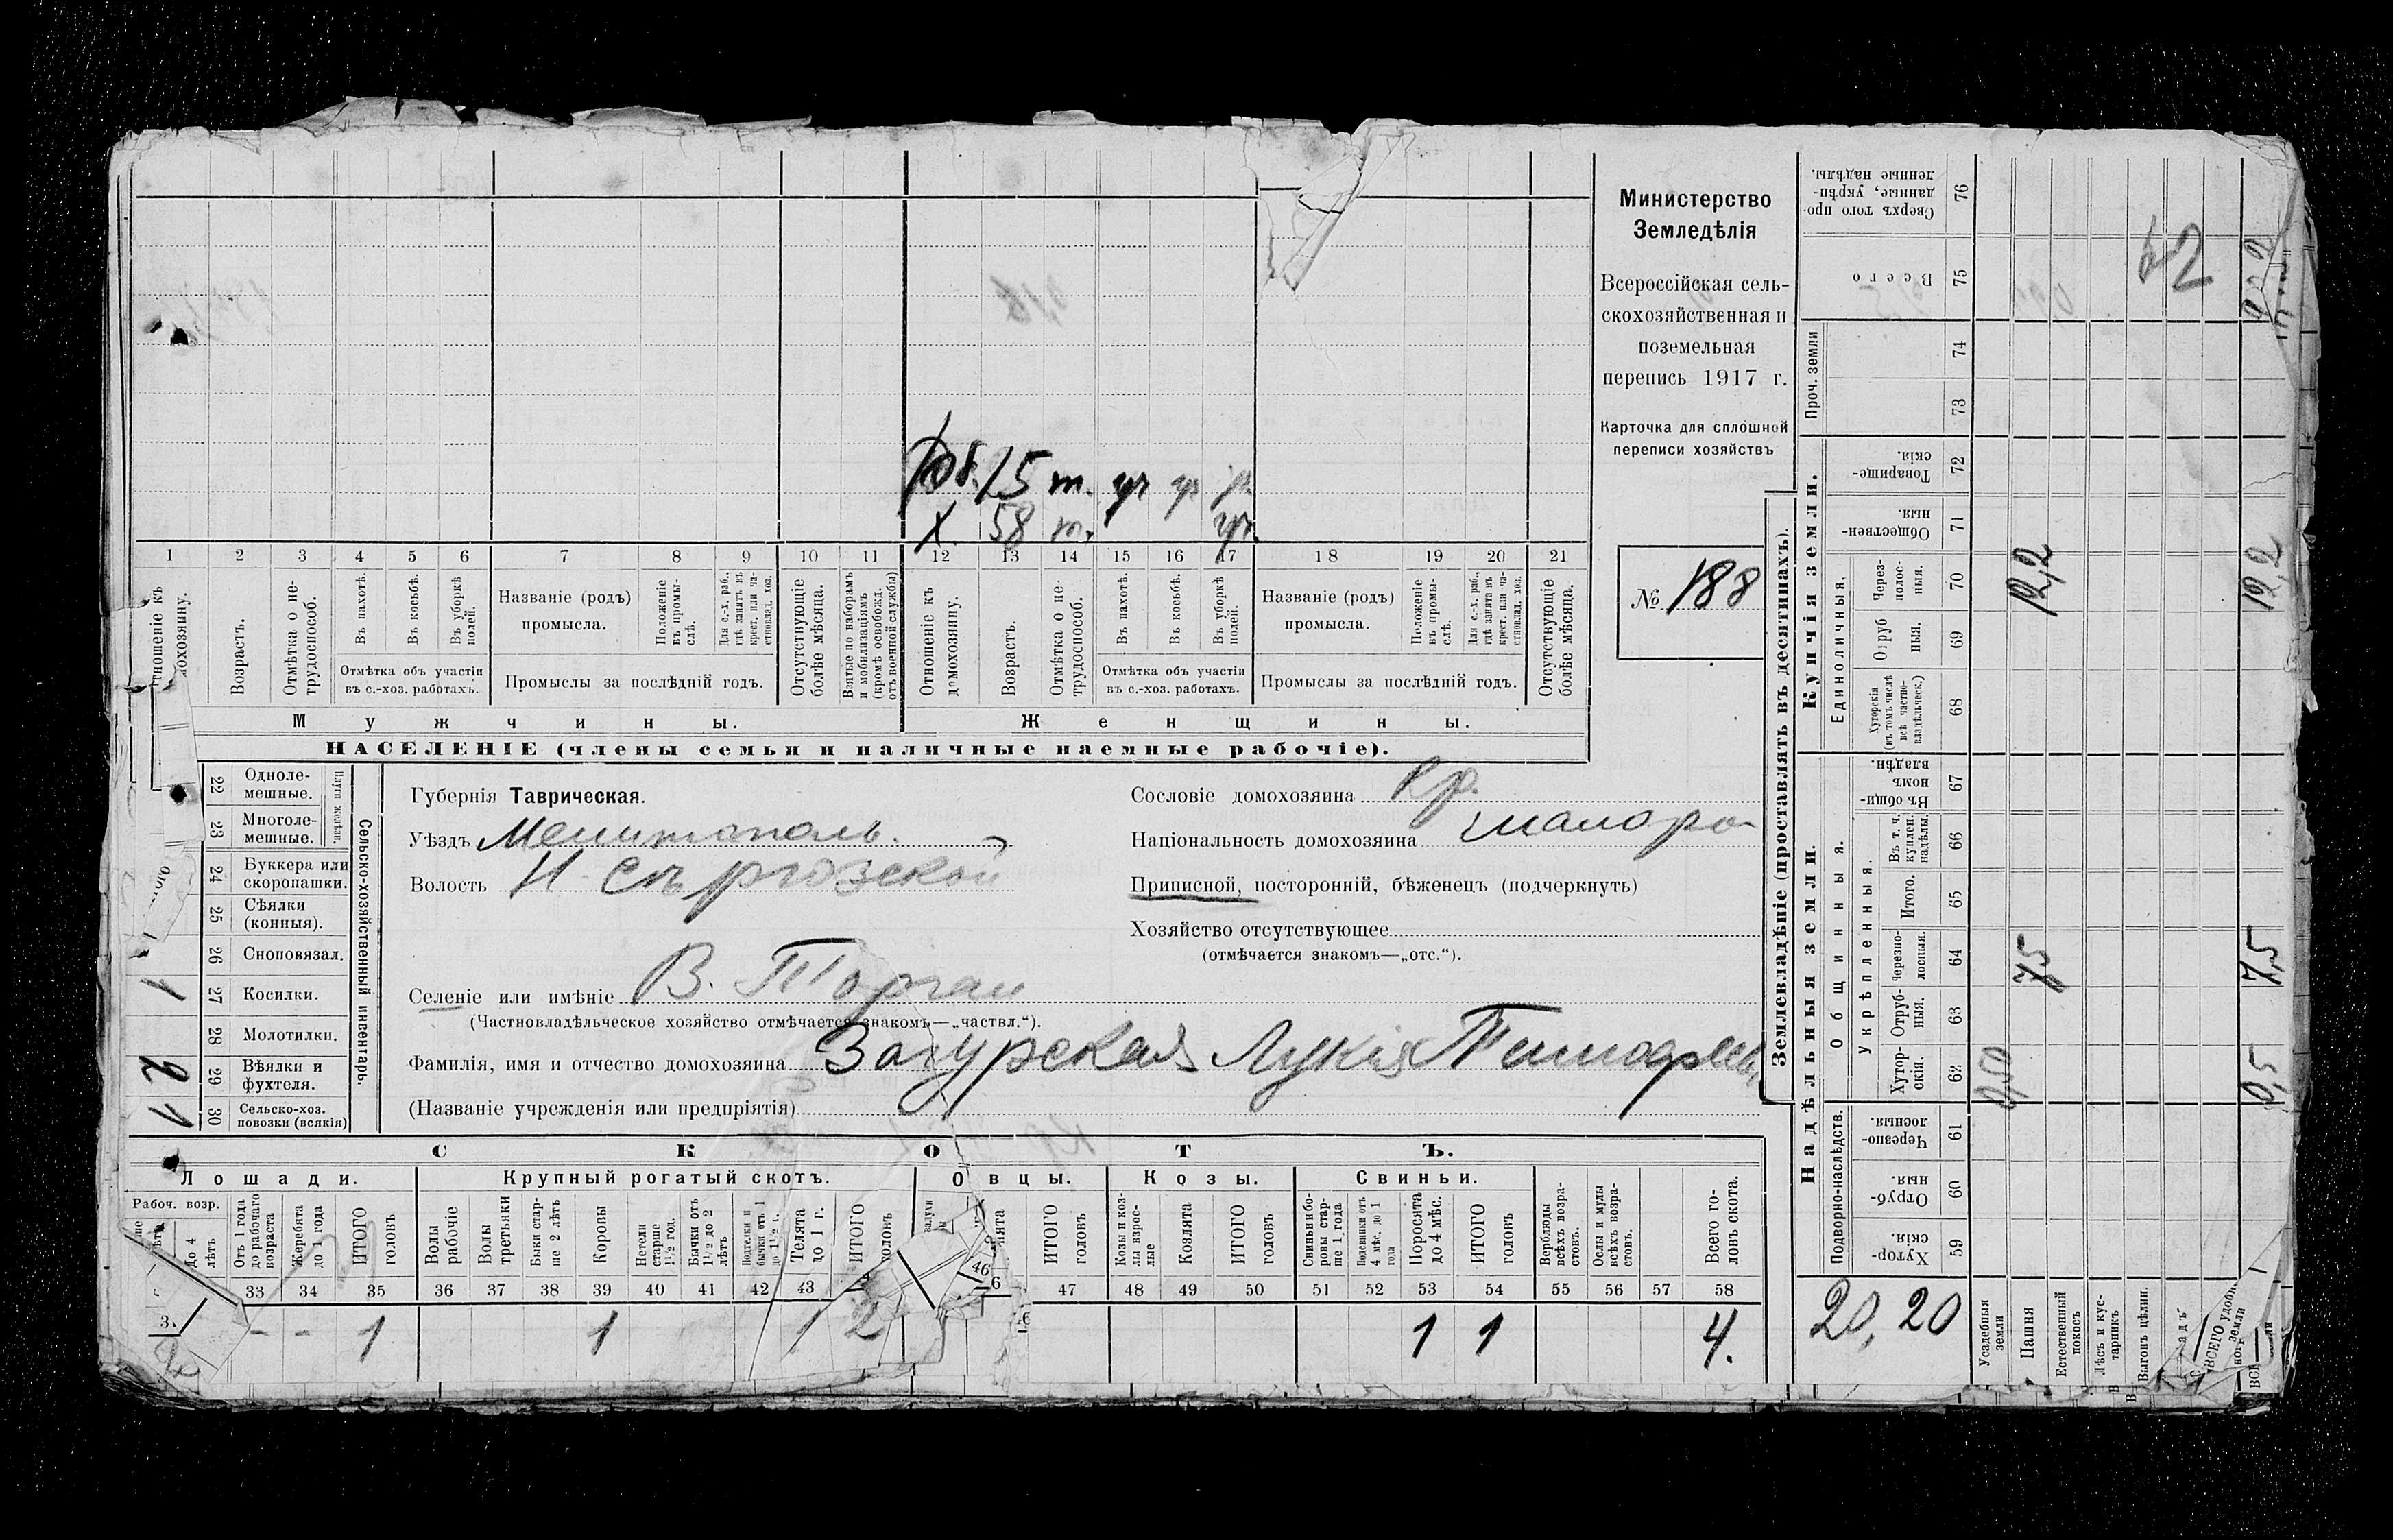 Министерство
Земледѣлія
Всероссійская сель-
скохозяйственная и
поземельная
перепись 1917 г.
Карточка для сплошной
переписи хозяйствъ
№ 188
15 т.
58 т.
1 2 3 4 5 6 7 8 9 10 11 12 13 14 15 16 17 18 19 20 21
Возрастъ.
Отмѣтка о не-
трудоспособ.
Въ пахотѣ.
Въ косьбѣ.
Въ уборкѣ
полей.
Отмѣтка объ участіи
въ с.-хоз. работахъ.
Названіе (родъ)
промысла.
Положеніе
въ промы-
слѣ.
Для с.-х. раб.,
гдѣ занятъ въ
крест. или ча-
стновлад. хоз.
Промыслы за послѣдній годъ.
Отсутствующіе
болѣе мѣсяца.
Взятые по наборамъ
и мобилизаціямъ
(кромѣ освобожд.
отъ военной службы)
Отношеніе къ
домохозяину.
Возрастъ.
Отмѣтка о не-
трудоспособ.
Въ пахотѣ.
Въ косьбѣ.
Въ уборкѣ
полей.
Отмѣтка объ участіи
въ с.-хоз. работахъ.
Названіе (родъ)
промысла.
Положеніе
въ промы-
слѣ.
Для с.-х. раб.,
гдѣ занята въ
крест. или ча-
стновлад. хоз.
Промыслы за послѣдній годъ.
Отсутствующіе
болѣе мѣсяца.
Мужчины.
Женщины.
НАСЕЛЕНІЕ (члены семьи и наличные наемные рабочіе).
22 Одноле-
мешные.
23 Многоле-
мешные.
24 Буккера или
скоропашки.
25 Сѣялки
(конныя).
26 Сноповязал.
1 27 Косилки.
28 Молотилки.
2 29 Вѣялки и
фухтеля.
1 30 Сельско-хоз.
повозки (всякія)
Сельско-хозяйственный инвентарь
Губернія Таврическая.
Уѣздъ Мелитополь.
Волость
Селеніе или имѣніе В. Торгаи
(Частновладѣльческое хозяйство отмѣчается знакомъ—„частвл.“).
Фамилія, имя и отчество домохозяина Загурская Лукія
(Названіе учрежденія или предпріятія)
Сословіе домохозяина Кр.
Національность домохозяина малоро
Приписной, посторонній, бѣженецъ (подчеркнуть)
Хозяйство отсутствующее
(отмѣчается знакомъ—„отс.“).
СКОТЪ.
Лошади.
Крупный рогатый скотъ.
Овцы.
Козы.
Свиньи.
Рабоч. возр.
До 4
лѣтъ
Отъ 1 года
до рабочаго
возраста
Жеребята
до 1 года
ИТОГО
головъ
Волы
рабочіе
Волы
третьяки
Быки стар-
ше 2 лѣтъ
Коровы
Нетели
старше
1½ год.
Бычки отъ
1½ до 2
лѣтъ
Телята
до 1 г.
ИТОГО
ИТОГО
головъ
Козы и коз-
лы взрос-
лые
Козлята
ИТОГО
головъ
Свиньи и бо-
ровы стар-
ше 1 года
Поросята
до 4 мѣс.
ИТОГО
головъ
Верблюды
всѣхъ возра-
стовъ.
Ослы и мулы
всѣхъ возра-
стовъ.
Всего го-
ловъ скота.
33 34 35 36 37 38 39 40 41 42 43 46 47 48 49 50 51 52 53 54 55 56 57 58
- - 1 1 1 2 1 1 4.
Землевладѣніе (проставлять въ десятинахъ).
Надѣльныя земли.
Купчія земли.
Подворно-наслѣдств.
Общинныя.
Укрѣпленныя.
Единоличныя.
Проч. земли
Сверхъ того про-
данные, укрѣп-
ленные надѣлы.
76
Всего
75
74
73
Товарище-
скія.
72
Обществен-
ныя.
71
Через-
полос-
ныя.
70
Отруб
ныя.
69
Хуторскія
(въ томъ числѣ
всѣ частно-
владѣльческ.)
68
Въ общин-
номъ
владѣн.
67
Въ т. ч.
куплен.
надѣлы.
66
Итого.
65
Черезпо-
лосныя.
64
Отруб-
ныя.
63
Хутор-
скія.
62
Черезпо-
лосныя.
61
Отруб-
ныя.
60
Хутор-
скія.
59
0,50
7,5
12,2
0,5
7,5
12,2
20,20
Усадебныя
земли
Пашня
Естественный
покосъ
Лѣсъ и кус-
тарникъ
Выгонъ цѣлин.